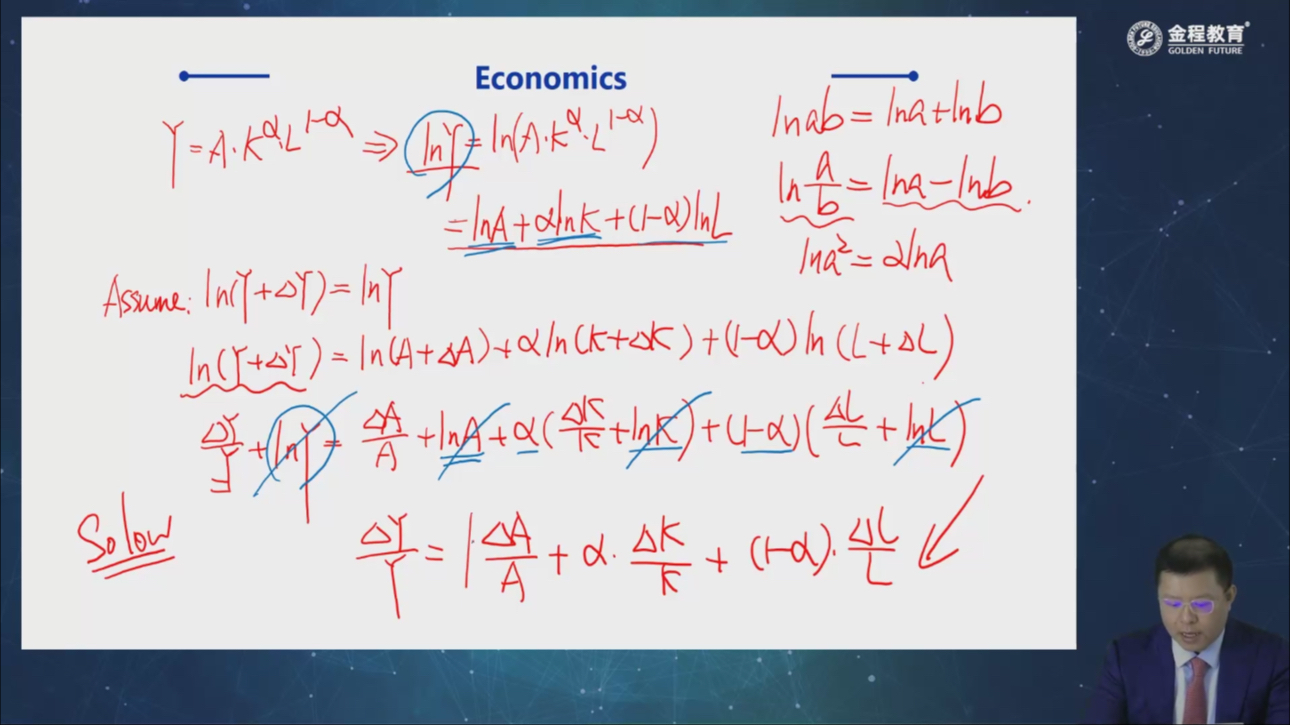 金程教育
GOLDEN FUTURE
Economics
Y = A·K^α·L^(1-α) ⇒ lnY = ln(A·K^α·L^(1-α))
= lnA + αlnK + (1-α)lnL
lnab = lna + lnb
ln a/b = lna - lnb.
lna² = 2lna
Assume: ln(Y+ΔY) = lnY
ln(Y+ΔY) = ln(A+ΔA) + αln(K+ΔK) + (1-α)ln(L+ΔL)
ΔY/Y + lnY = ΔA/A + lnA + α(ΔK/K + lnK) + (1-α)(ΔL/L + lnL)
Solow
ΔY/Y = 1·ΔA/A + α·ΔK/K + (1-α)·ΔL/L